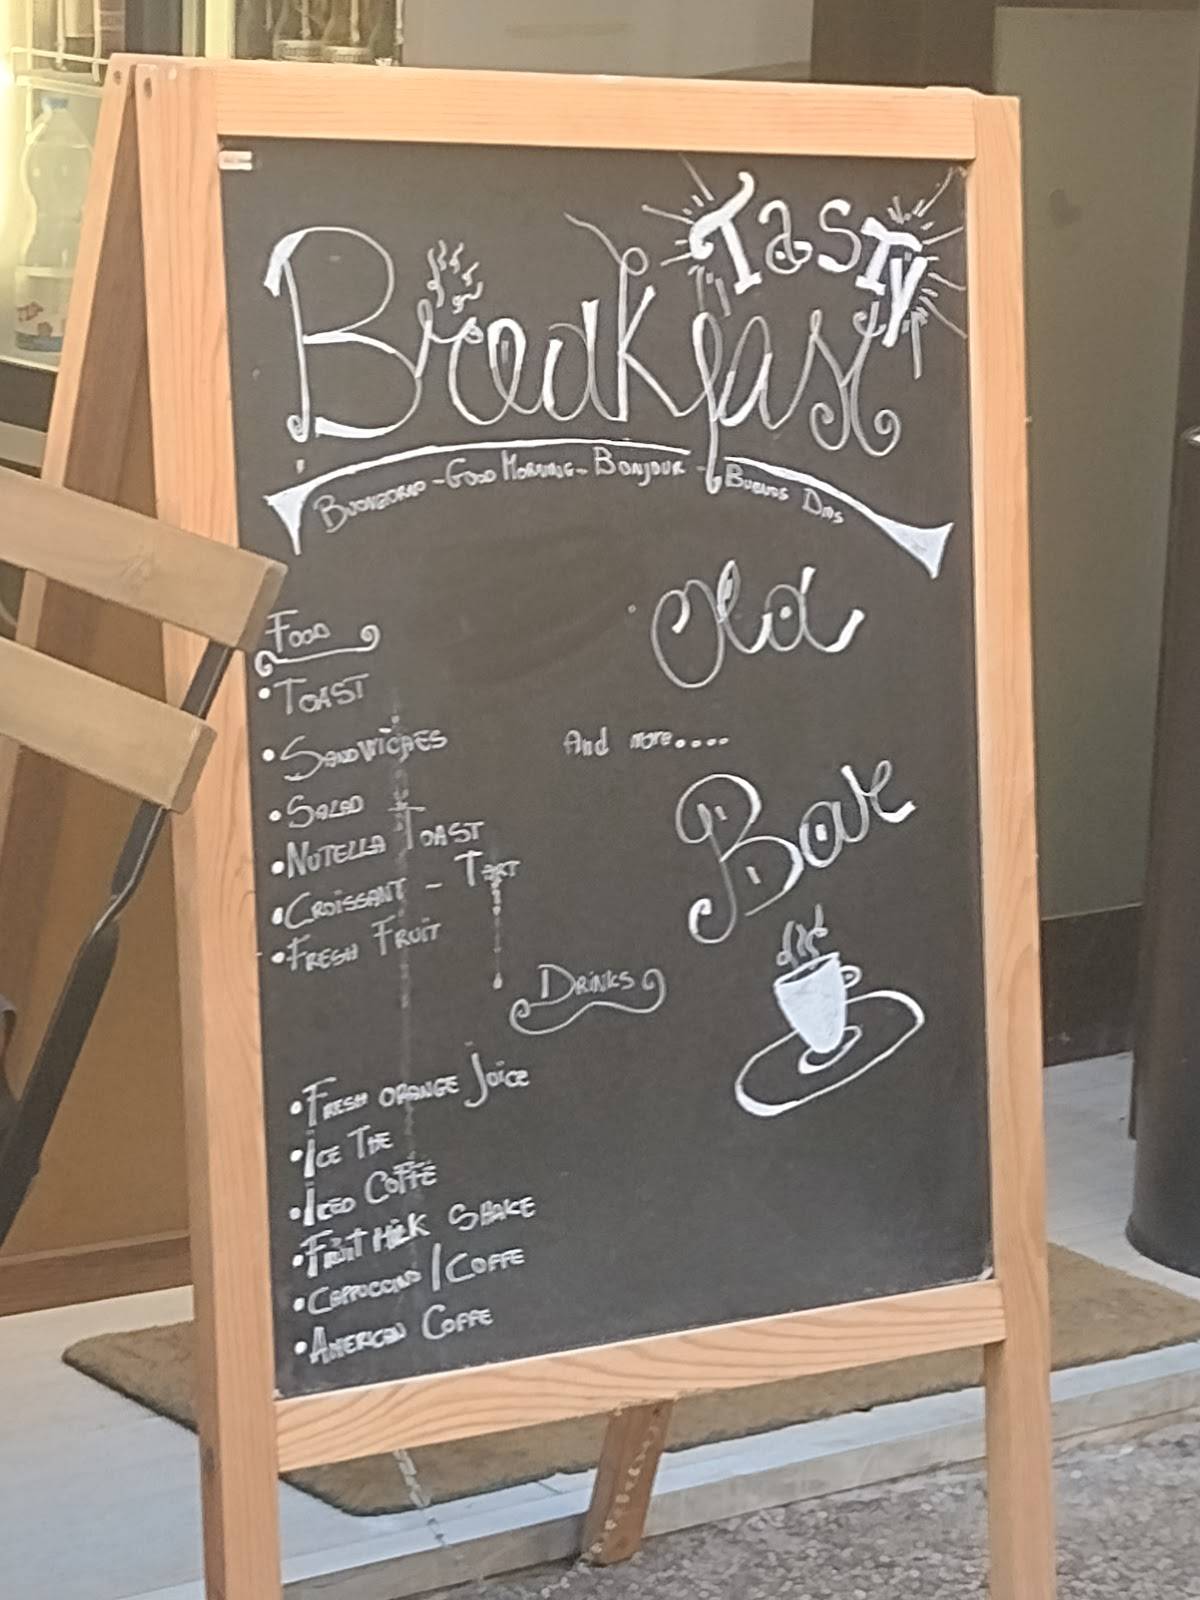 Tasty
Breakfast
Buongiorno - Good Morning - Bonjour - Buenos Dias
Old
Food
• Toast
• Sandwiches
And more....
Bar
• Salad
• Nutella Toast
• Croissant - Tart
• Fresh Fruit
Drinks
• Fresh orange Juice
• Ice The
• Iced Coffe
• Fruit Milk Shake
• Cappuccino / Coffe
• American Coffe